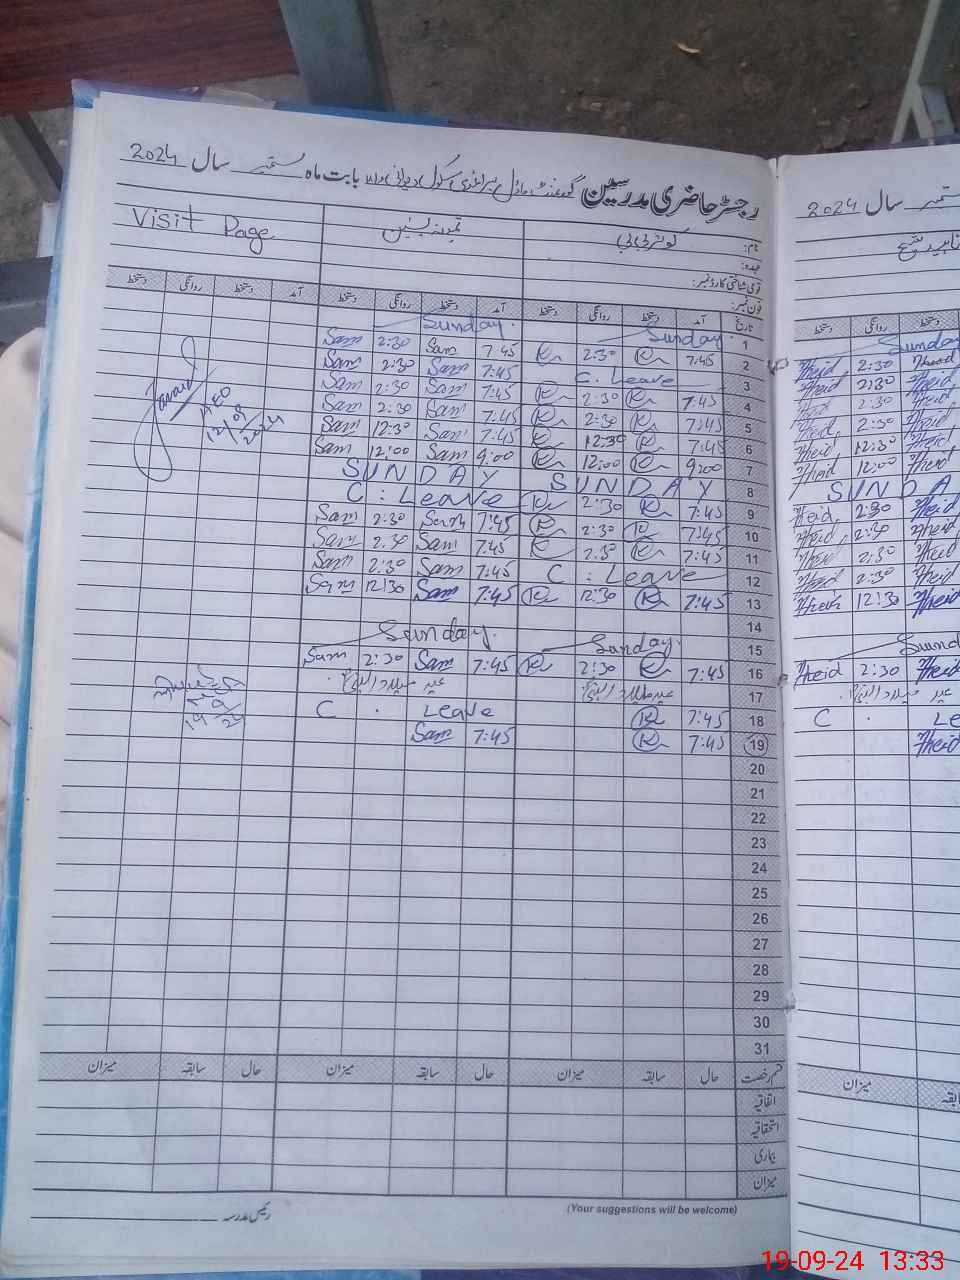 رجسٹر حاضری مدرسین گورنمنٹ ماڈل پرائمری سکول بابت ماہ ستمبر سال 2024
نام: کوثر بی بی Visit Page
عہدہ:
قومی شناختی کارڈ نمبر:
فون نمبر:
تاریخ آمد دستخط روانگی دستخط آمد دستخط روانگی دستخط آمد دستخط روانگی دستخط
1 Sunday. Sunday.
2 7:45 R 2:30 R 7:45 Sam 2:30 Sam
3 C. Leave 7:45 Sam 2:30 Sam
4 7:45 R 2:30 R 7:45 Sam 2:30 Sam
5 7:45 R 2:30 R 7:45 Sam 2:30 Sam
6 7:45 R 12:30 R 7:45 Sam 12:30 Sam
7 9:00 R 12:00 R 9:00 Sam 12:00 Sam
8 SUNDAY SUNDAY
9 7:45 R 2:30 R C : Leave
10 7:45 R 2:30 R 7:45 Sam 2:30 Sam
11 7:45 R 2:30 R 7:45 Sam 2:30 Sam
12 C : Leave 7:45 Sam 2:30 Sam
13 7:45 R 12:30 R 7:45 Sam 12:30 Sam
14
15 Sunday. Sunday.
16 7:45 R 2:30 R 7:45 Sam 2:30 Sam
17 عید میلاد النبیؐ عید میلاد النبیؐ
18 7:45 R C . Leave
19 7:45 R 7:45 Sam
20
21
22
23
24
25
26
27
28
29
30
31
AEO
12/09/2024
19/9/24
قسم رخصت حال سابقہ میزان حال سابقہ میزان حال سابقہ میزان
اتفاقیہ
استحقاقیہ
بیماری
میزان
رئیس مدرسہ
(Your suggestions will be welcome)
ستمبر سال 2024
دستخط روانگی دستخط
Sunday
2:30
2:30
2:30
2:30
12:30
12:00
SUNDA
2:30
2:30
2:30
2:30
12:30
Sund
2:30
عید میلاد النبیؐ
C . Le
میزان سابقہ
19-09-24 13:33